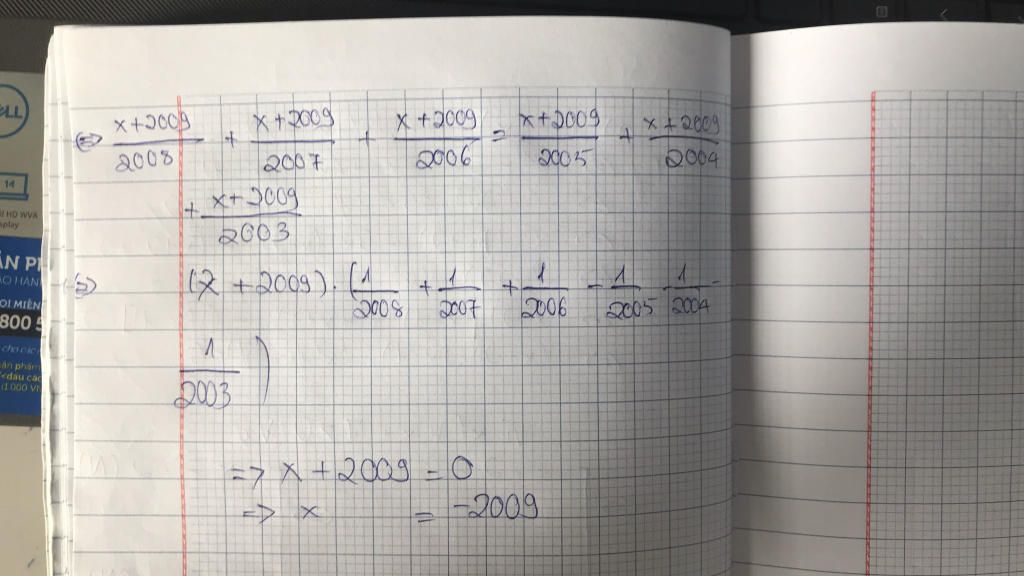 ⇔ x+2009/2008 + x+2009/2007 + x+2009/2006 = x+2009/2005 + x+2009/2004
+ x+2009/2003
⇔ (x + 2009) . (1/2008 + 1/2007 + 1/2006 - 1/2005 - 1/2004 -
1/2003)
=> x + 2009 = 0
=> x = -2009
ELL
14
HD WVA
splay
ÀN PH
800 5
cho các
sản phẩm